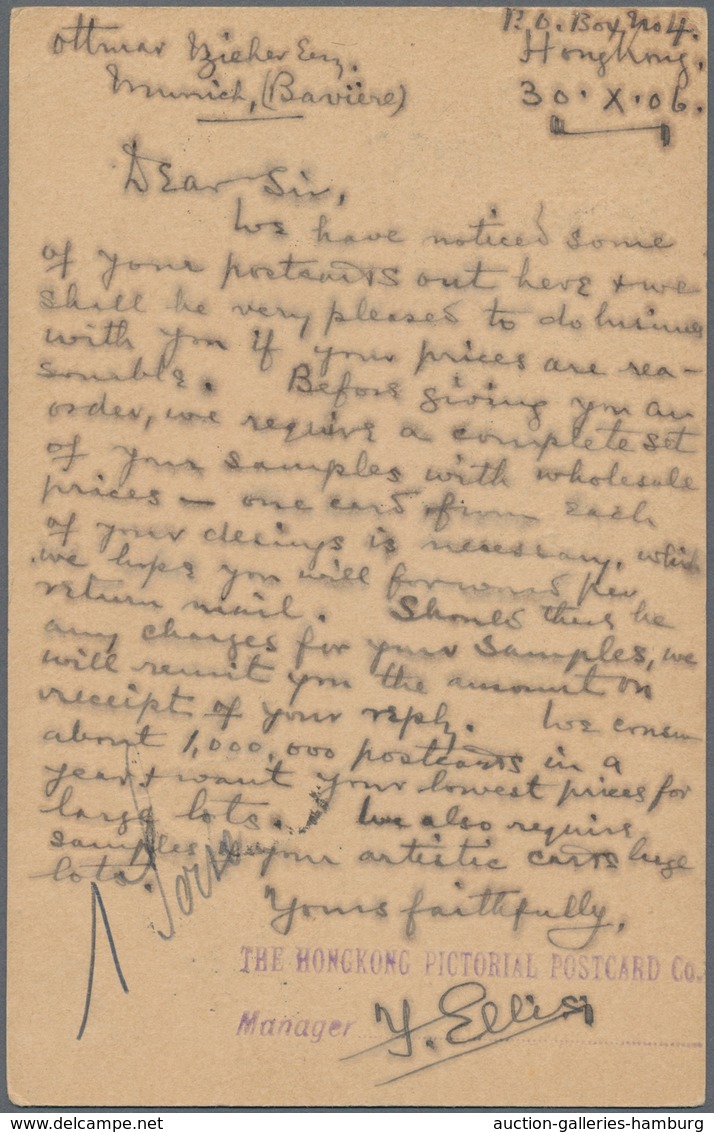 P.O. Box No 4.
Ottmar Zieher Esq.
Hongkong,
Munich, (Bavière)
30. X. 06.
Dear Sir,
We have noticed some
of your postcards out here & we
shall be very pleased to do business
with you if your prices are rea-
sonable. Before giving you an
order, we require a complete set
of your samples with wholesale
prices — one card from each
of your desings is necessary, which
we hope you will forward per
return mail. Should there be
any charges for your samples, we
will remit you the amount on
receipt of your reply. We consum
about 1,000,000 postcards in a
year & want your lowest prices for
large lots. We also require
samples of your artistic cards huge
lots.
Yours faithfully,
THE HONGKONG PICTORIAL POSTCARD Co.
Manager Y. Ellis
auction-galleries-hamburg